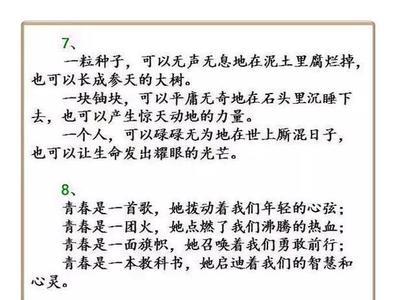 7、
一粒种子，可以无声无息地在泥土里腐烂掉，
也可以长成参天的大树。
一块铀块，可以平庸无奇地在石头里沉睡下
去，也可以产生惊天动地的力量。
一个人，可以碌碌无为地在世上厮混日子，
也可以让生命发出耀眼的光芒。
8、
青春是一首歌，她拨动着我们年轻的心弦；
青春是一团火，她点燃了我们沸腾的热血；
青春是一面旗帜，她召唤着我们勇敢前行；
青春是一本教科书，她启迪着我们的智慧和
心灵。